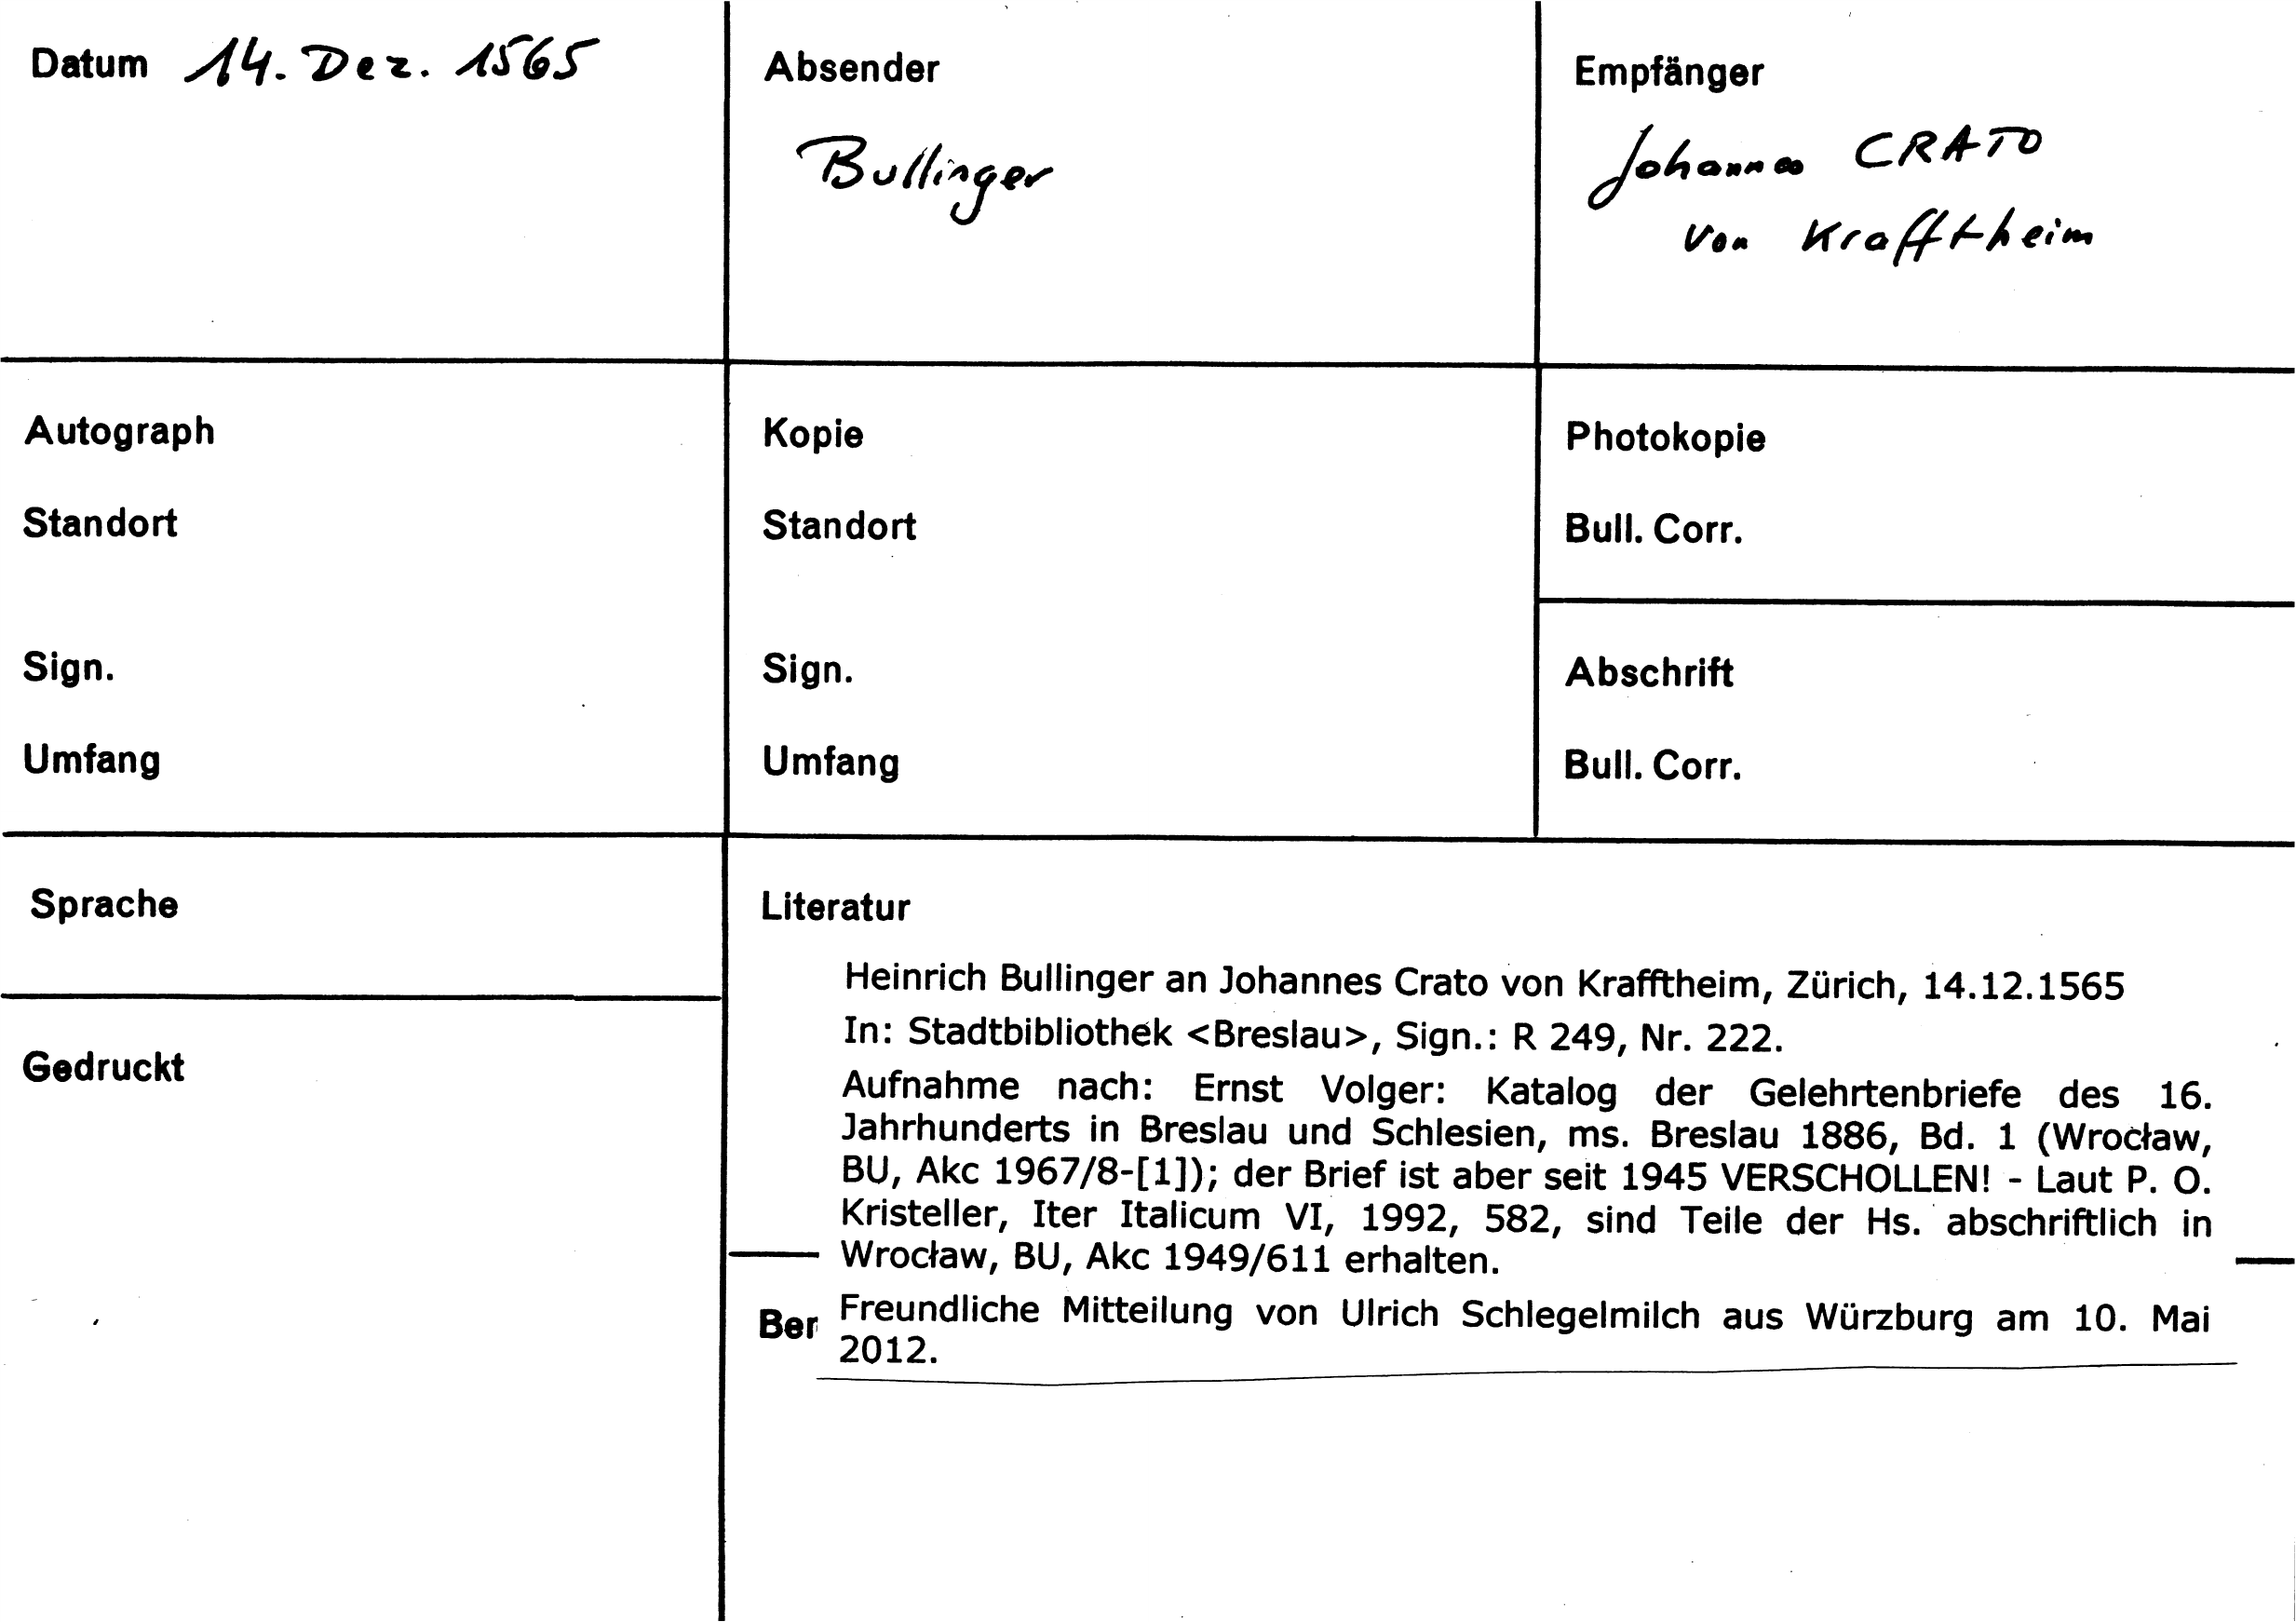 Datum 14. Dez. 1565
Absender
Bullinger
Empfänger
Johannes CRATO
von Krafftheim
Autograph
Standort
Sign.
Umfang
Kopie
Standort
Sign.
Umfang
Photokopie
Bull. Corr.
Abschrift
Bull. Corr.
Sprache
Gedruckt
Literatur
Heinrich Bullinger an Johannes Crato von Krafftheim, Zürich, 14.12.1565
In: Stadtbibliothek <Breslau>, Sign.: R 249, Nr. 222.
Aufnahme nach: Ernst Volger: Katalog der Gelehrtenbriefe des 16.
Jahrhunderts in Breslau und Schlesien, ms. Breslau 1886, Bd. 1 (Wrocław,
BU, Akc 1967/8-[1]); der Brief ist aber seit 1945 VERSCHOLLEN! - Laut P. O.
Kristeller, Iter Italicum VI, 1992, 582, sind Teile der Hs. abschriftlich in
Wrocław, BU, Akc 1949/611 erhalten.
Ber
Freundliche Mitteilung von Ulrich Schlegelmilch aus Würzburg am 10. Mai
2012.